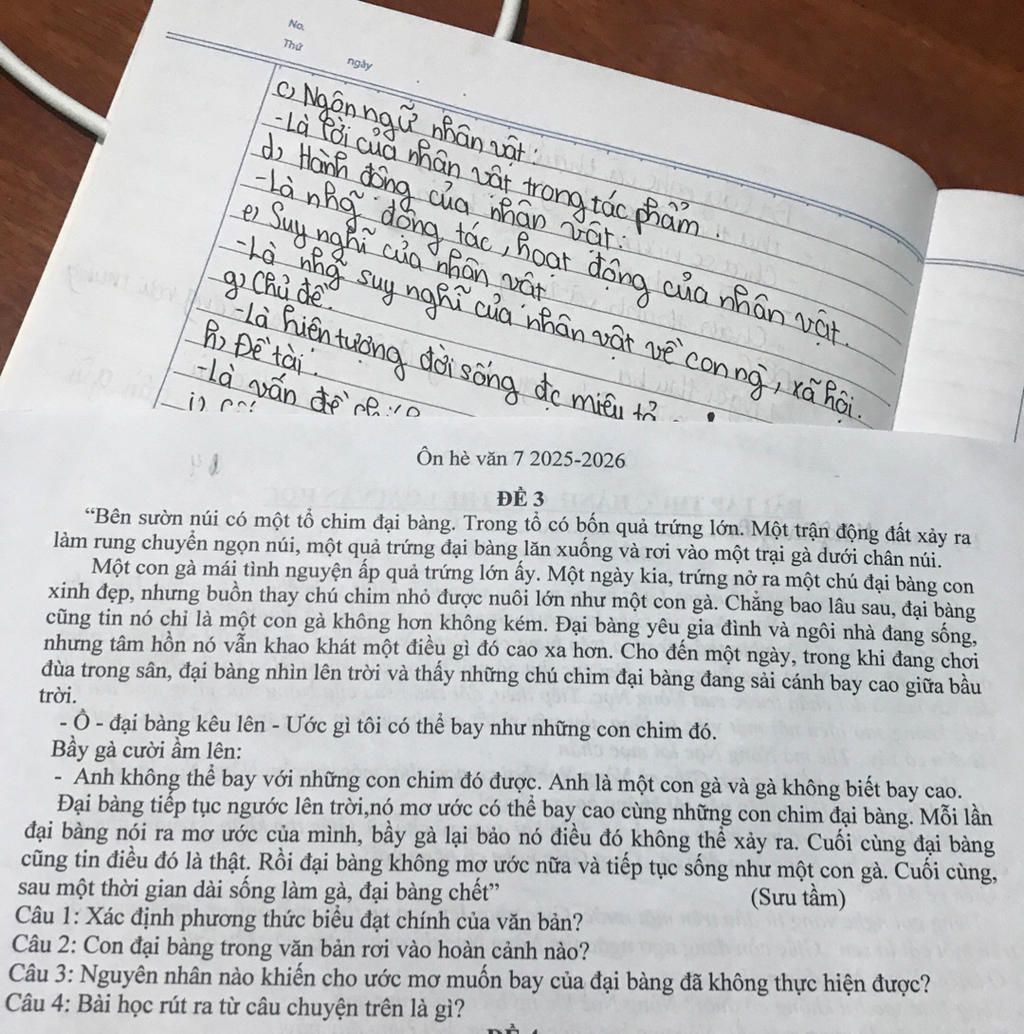 No.
Thứ
ngày
c) Ngôn ngữ nhân vật:
-Là lời của nhân vật trong tác phẩm.
d) Hành động của nhân vật:
-Là nhg̃ động tác, hoạt động của nhân vật.
e) Suy nghĩ của nhân vật
-Là nhg̃ suy nghĩ của nhân vật về con ng`, xã hội.
g) Chủ đề
-Là hiện tượng đời sống đc miêu tả
h) Đề tài:
-Là vấn đề
i)
Ôn hè văn 7 2025-2026
ĐỀ 3
“Bên sườn núi có một tổ chim đại bàng. Trong tổ có bốn quả trứng lớn. Một trận động đất xảy ra
làm rung chuyển ngọn núi, một quả trứng đại bàng lăn xuống và rơi vào một trại gà dưới chân núi.
Một con gà mái tình nguyện ấp quả trứng lớn ấy. Một ngày kia, trứng nở ra một chú đại bàng con
xinh đẹp, nhưng buồn thay chú chim nhỏ được nuôi lớn như một con gà. Chẳng bao lâu sau, đại bàng
cũng tin nó chỉ là một con gà không hơn không kém. Đại bàng yêu gia đình và ngôi nhà đang sống,
nhưng tâm hồn nó vẫn khao khát một điều gì đó cao xa hơn. Cho đến một ngày, trong khi đang chơi
đùa trong sân, đại bàng nhìn lên trời và thấy những chú chim đại bàng đang sải cánh bay cao giữa bầu
trời.
- Ồ - đại bàng kêu lên - Ước gì tôi có thể bay như những con chim đó.
Bầy gà cười ầm lên:
- Anh không thể bay với những con chim đó được. Anh là một con gà và gà không biết bay cao.
Đại bàng tiếp tục ngước lên trời,nó mơ ước có thể bay cao cùng những con chim đại bàng. Mỗi lần
đại bàng nói ra mơ ước của mình, bầy gà lại bảo nó điều đó không thể xảy ra. Cuối cùng đại bàng
cũng tin điều đó là thật. Rồi đại bàng không mơ ước nữa và tiếp tục sống như một con gà. Cuối cùng,
sau một thời gian dài sống làm gà, đại bàng chết” (Sưu tầm)
Câu 1: Xác định phương thức biểu đạt chính của văn bản?
Câu 2: Con đại bàng trong văn bản rơi vào hoàn cảnh nào?
Câu 3: Nguyên nhân nào khiến cho ước mơ muốn bay của đại bàng đã không thực hiện được?
Câu 4: Bài học rút ra từ câu chuyện trên là gì?